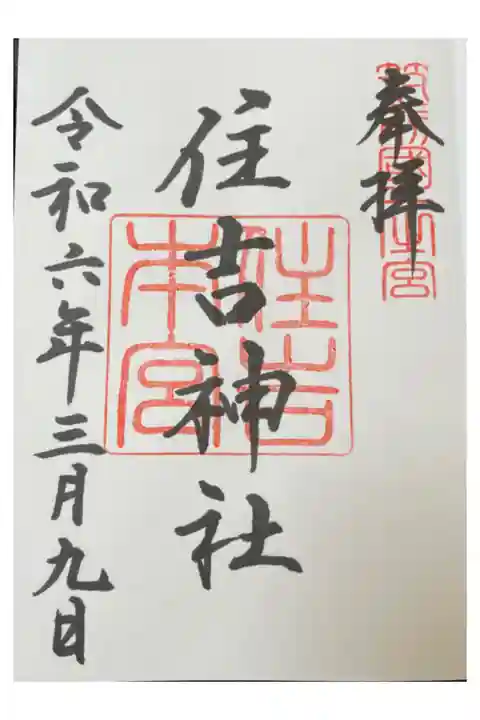 奉拝
筑前國一之宮
住吉神社
住吉本宮
令和六年三月九日